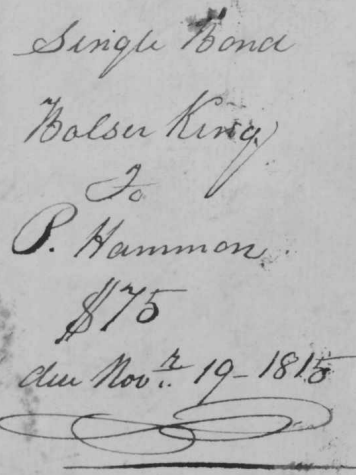 Single Bond
Holser King
To
P. Hammon
$75
due Novr. 19 - 1815